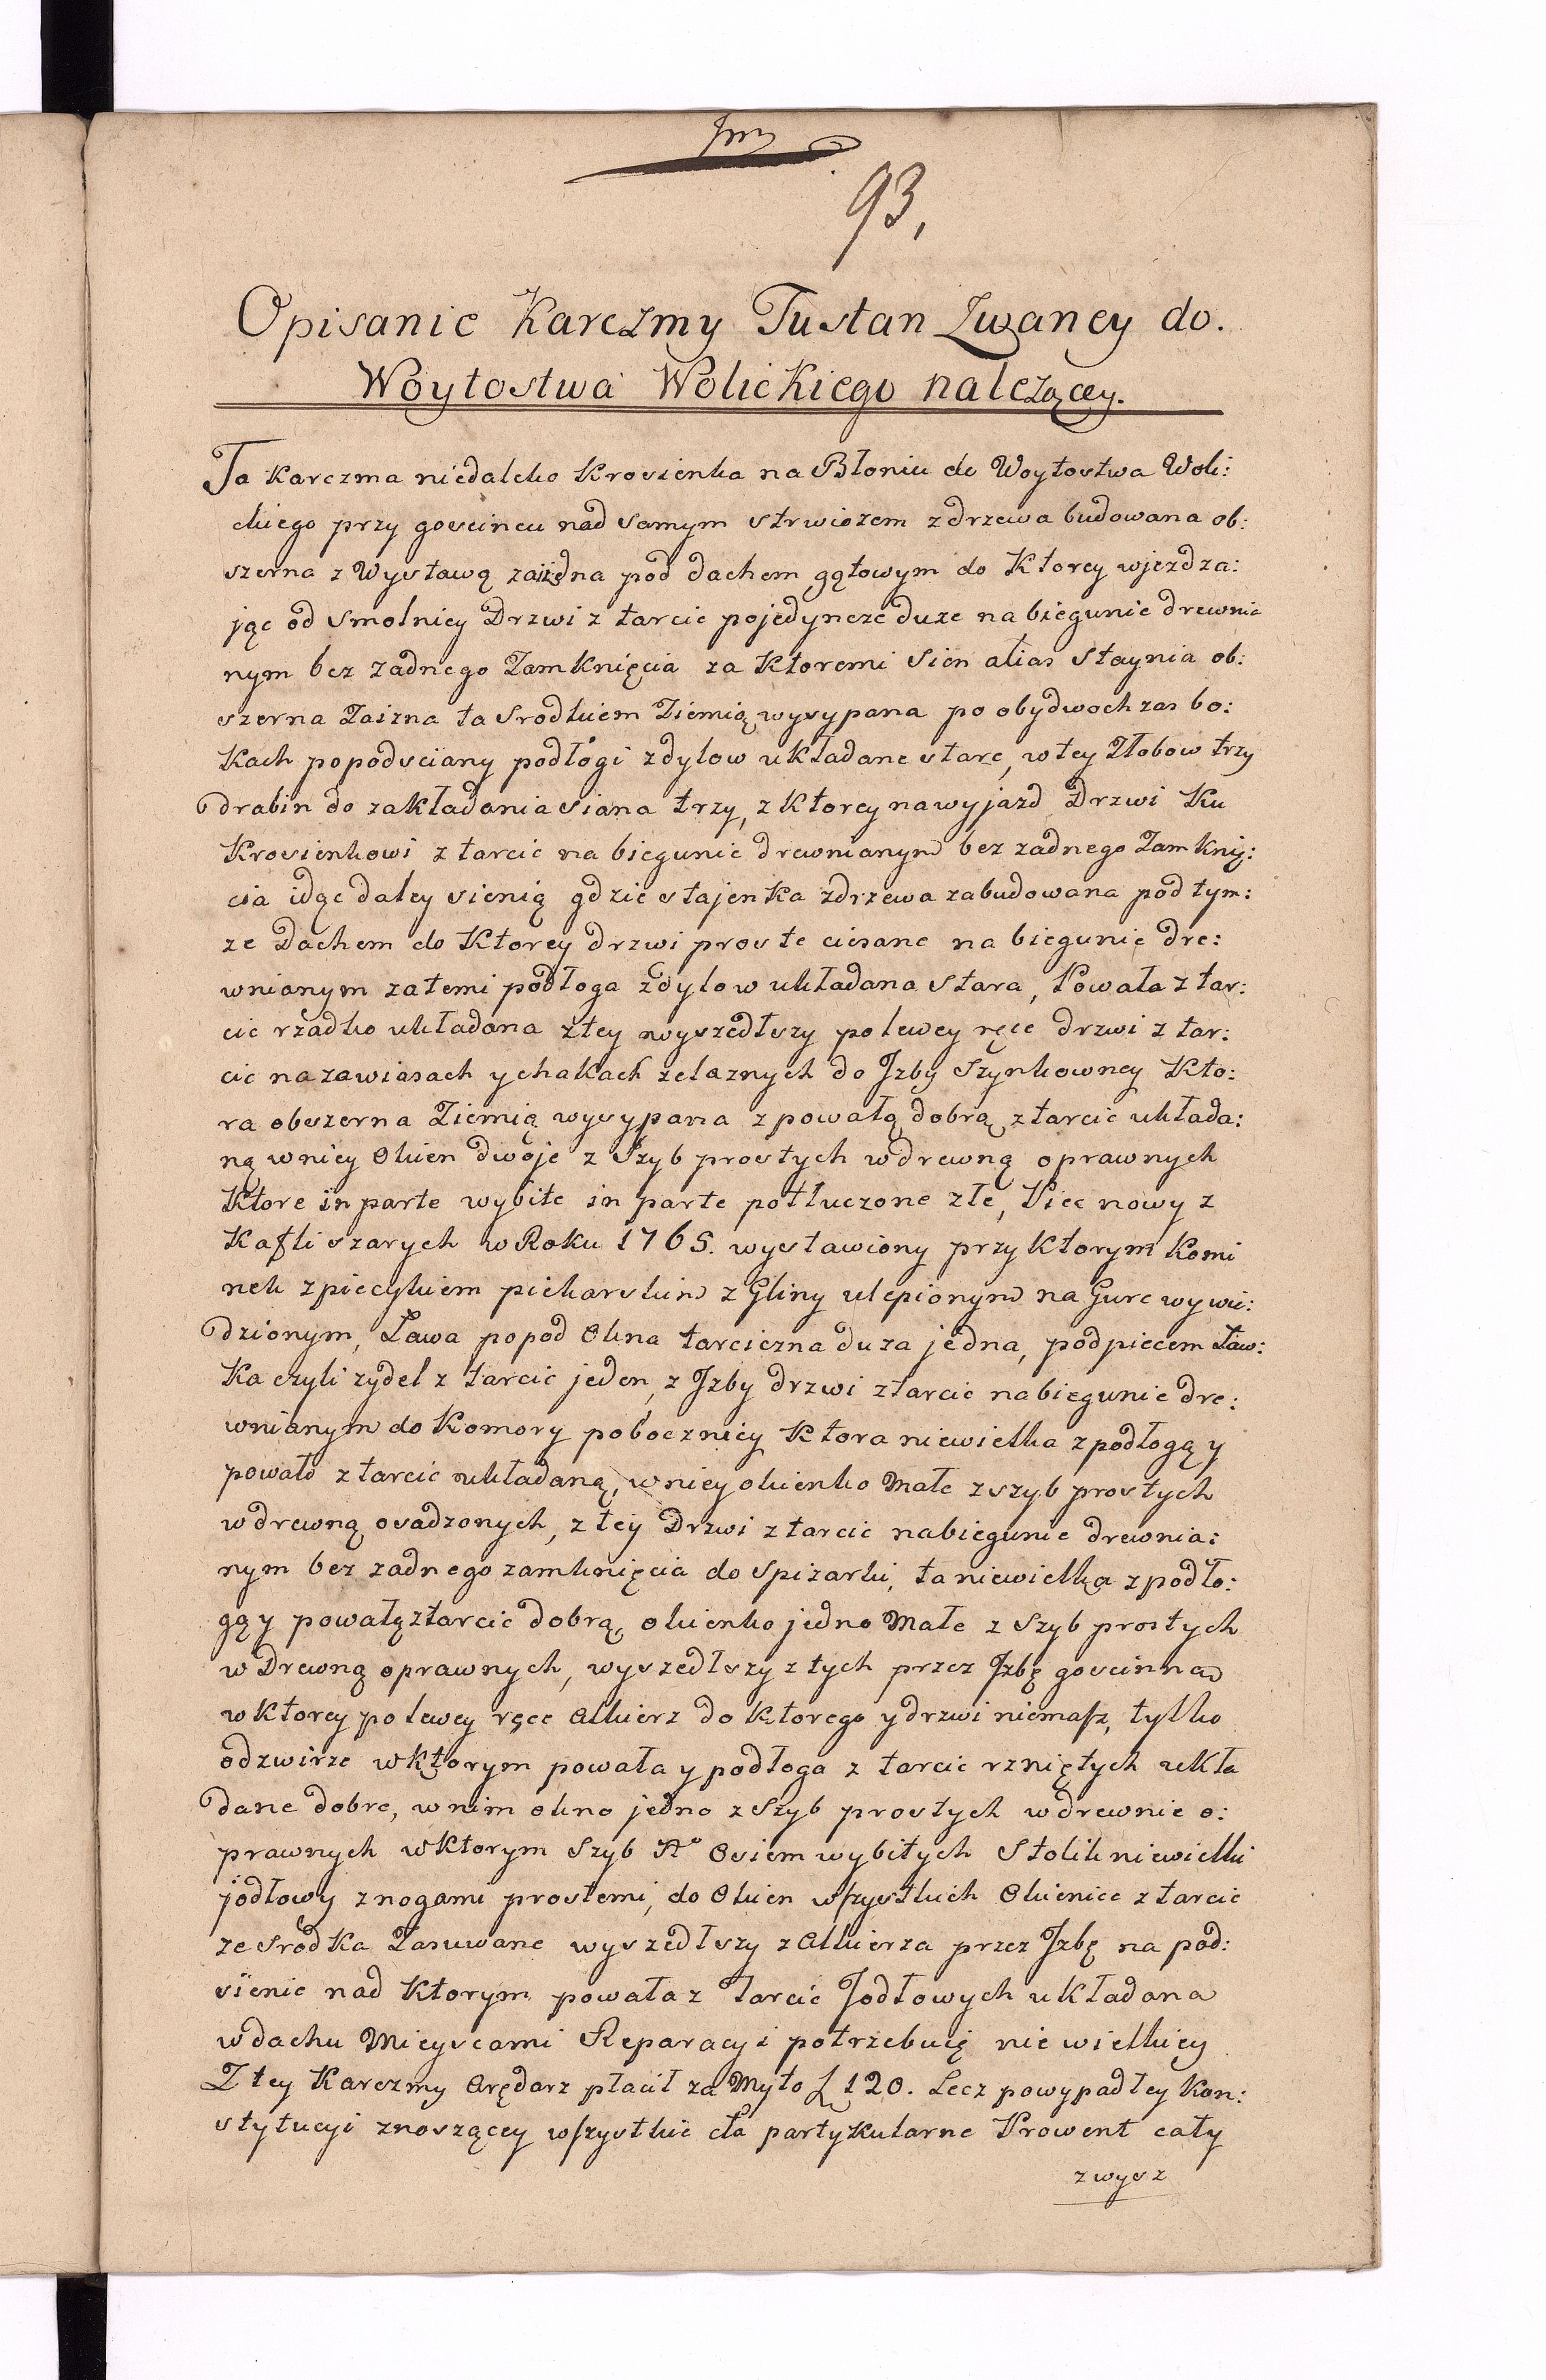 93,
Opisanie Karczmy Tustan Zwaney do.
Woytostwa Wolickiego należącey.
Ta Karczma niedaleko Krosienka na Błoniu do Woytostwa Woli:
ckiego przy goscincu nad samym strwiozem z drzewa budowana ob:
szerna z Wystawą zaiezdna pod dachem gątowym do Ktorey wjezdza:
jąc od Smolnicy Drzwi z tarcic pojedyncze duze na biegunie drewnia
nym bez zadnego Zamknięcia za Ktoremi Sien alias Staynia ob:
szerna Zaizna ta Srodkiem Ziemią wysypana po obydwoch zas bo:
Kach popodsciany podłogi z dylow układane stare, w tey Złobow trzy
drabin do zakładania siana trzy, z Ktorey na wyjazd Drzwi Ku
Krosienkowi z tarcic na biegunie drewnianym bez zadnego Zamknię:
cia idąc daley sienią gdzie stajenka z drzewa zabudowana pod tym:
ze Dachem do Ktorey drzwi proste ciesane na biegunie dre:
wnianym zatemi podłoga z dylow układana Stara, Powała z tar:
cic rzadko układana z tey wyszedłszy po lewey ręce drzwi z tar:
cic na zawiasach y chakach zelaznych do Jzby Szynkowney Kto:
ra obszerna Ziemią wysypana z powałą dobrą z tarcic układa:
ną w niey Okien dwoje z Szyb prostych w drewną oprawnych
Ktore in parte wybite in parte potłuczone złe, Piec nowy z
Kafli szarych w Roku 1765. wystawiony przy Ktorym Komi
nek z piecykiem piekarskim z Gliny ulepionym na Gure wywie:
dzionym, Ława popod Okna tarciczna duza jedna, pod piecem Ław:
Ka czyli zydel z tarcic jeden, z Jzby drzwi z tarcic na biegunie dre:
wnianym do Komory poboczniey Ktora niewielka z podłogą y
powało z tarcic układaną, w niey okienko Małe z szyb prostych
w drewną osadzonych, z tey Drzwi z tarcic na biegunie drewnia:
nym bez zadnego zamknięcia do Spizarki, ta niewielka z podło:
gą y powałą z tarcic dobrą, okienko jedno Małe z Szyb prostych
w Drewną oprawnych, wyszedłszy z tych przez Jzbę goscinna
w Ktorey po lewey ręce alkierz do Ktorego y drzwi niemasz, tylko
odzwirze w ktorym powała y podłoga z tarcic rzniętych ukła
dane dobre, w nim okno jedno z Szyb prostych w drewnie o:
prawnych w Ktorym Szyb No Osiem wybitych Stolik niewielki
jodłowy z nogami prostemi, do Okien wszystkich Okienice z tarcic
ze srodka Zasuwane wyszedłszy z alkierza przez Jzbę na pod:
sienie nad Ktorym powała z tarcic Jodłowych układana
w dachu Mieyscami Reparacyi potrzebuię nie wielkiey
Z tey Karczmy Arędarz płacił za Myto f 120. Lecz po wypadłey Kon:
stytucyi znoszącey wszystkie cła partykularne Prowent cały
zwysz